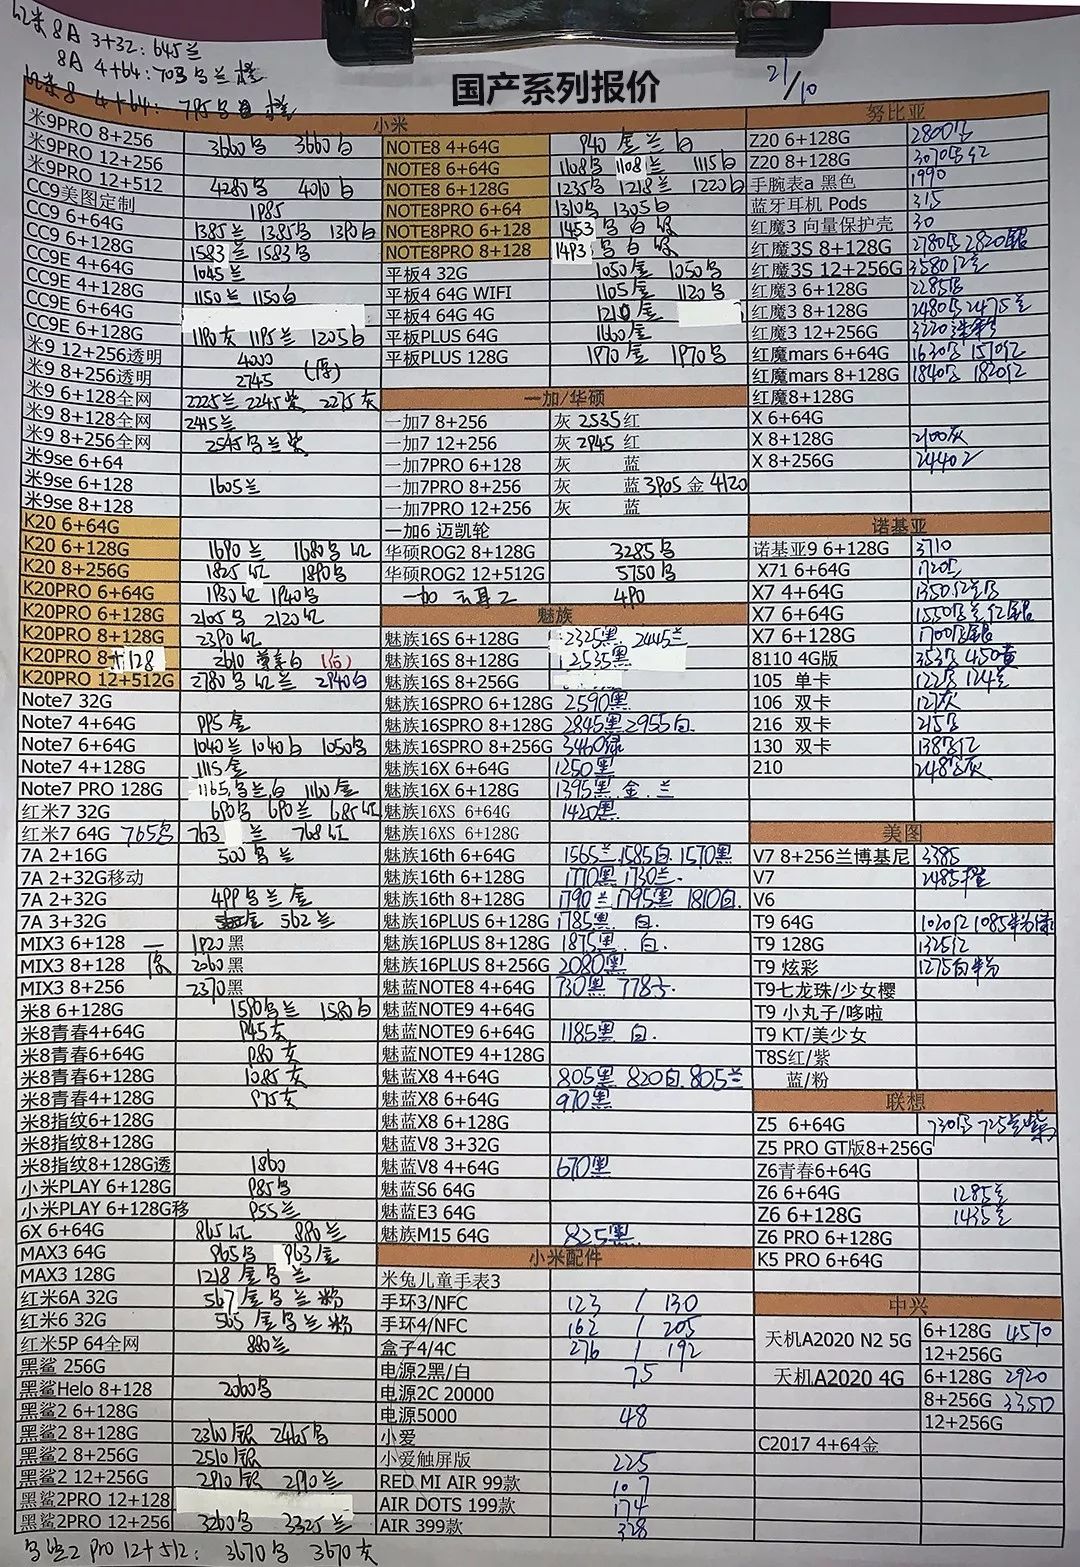 红米8A 3+32: 645兰
8A 4+64: 705乌兰
红米8 4+64: 795乌
国产系列报价
21/10
小米
米9PRO 8+256 3660乌 3660白
米9PRO 12+256
米9PRO 12+512 4280乌 4010白
CC9美图定制 1985
CC9 6+64G 1385兰 1385乌 1390白
CC9 6+128G 1583兰 1583乌
CC9E 4+64G 1045兰
CC9E 4+128G 1150兰 1150白
CC9E 6+64G
CC9E 6+128G 1190灰 1195兰 1205白
米9 12+256透明 4000
米9 8+256透明 2745
米9 6+128全网 2225兰 2245紫 2275灰
米9 8+128全网 2415兰
米9 8+256全网 2545乌兰紫
米9se 6+64
米9se 6+128 1605兰
米9se 8+128
K20 6+64G
K20 6+128G 1690兰 1680乌红
K20 8+256G 1825红 1890乌
K20PRO 6+64G 1930红 1940乌
K20PRO 6+128G 2105乌 2120红
K20PRO 8+128G 2390红
K20PRO 8+128 2610尊享白
K20PRO 12+512G 2780乌红兰 2940白
Note7 32G
Note7 4+64G 995金
Note7 6+64G 1040兰 1040白 1050乌
Note7 4+128G 1115金
Note7 PRO 128G 1165乌兰白 1160金
红米7 32G 690乌 690兰 685红
红米7 64G 765乌 763兰 768红
7A 2+16G 500乌兰
7A 2+32G移动
7A 2+32G 499乌兰金
7A 3+32G 562兰
MIX3 6+128 1920黑
MIX3 8+128 2060黑
MIX3 8+256 2370黑
米8 6+128G 1590乌兰 1580白
米8青春4+64G 945灰
米8青春6+64G 980灰
米8青春6+128G 1085灰
米8青春4+128G 975灰
米8指纹6+128G
米8指纹8+128G
米8指纹8+128G透 1860
小米PLAY 6+128G 985乌
小米PLAY 6+128G移 955兰
6X 6+64G 865红 880兰
MAX3 64G 965乌 963金
MAX3 128G 1218金乌兰
红米6A 32G 567金乌兰粉
红米6 32G 565金乌兰粉
红米5P 64全网 880兰
黑鲨 256G
黑鲨Helo 8+128 2060乌
黑鲨2 6+128G
黑鲨2 8+128G 2360银 2465乌
黑鲨2 8+256G 2510银
黑鲨2 12+256G 2910银 2910兰
黑鲨2PRO 12+128
黑鲨2PRO 12+256 3260乌 3325兰
乌鲨2 Pro 12+512: 3670乌 3670灰
NOTE8 4+64G 940金兰白
NOTE8 6+64G 1108乌 1108兰 1115白
NOTE8 6+128G 1235乌 1218兰 1220白
NOTE8PRO 6+64 1310乌 1305白
NOTE8PRO 6+128 1453乌白绿
NOTE8PRO 8+128 1493乌白绿
平板4 32G 1050金 1050乌
平板4 64G WIFI 1105金 1120乌
平板4 64G 4G 1210金
平板PLUS 64G 1660金
平板PLUS 128G 1970金 1970乌
一加/华硕
一加7 8+256 灰 2535红
一加7 12+256 灰 2945红
一加7PRO 6+128 灰 蓝
一加7PRO 8+256 灰 蓝3905 金4120
一加7PRO 12+256 灰 蓝
一加6 迈凯轮
华硕ROG2 8+128G 3285乌
华硕ROG2 12+512G 5750乌
一加云耳2 490
魅族
魅族16S 6+128G 2325黑 2445兰
魅族16S 8+128G 2535黑
魅族16S 8+256G
魅族16SPRO 6+128G 2590黑
魅族16SPRO 8+128G 2845黑 2955白.
魅族16SPRO 8+256G 3460绿
魅族16X 6+64G 1250黑
魅族16X 6+128G 1395黑.金.兰
魅族16XS 6+64G 1420黑.
魅族16XS 6+128G
魅族16th 6+64G 1565兰.1585白.1570黑
魅族16th 6+128G 1770黑 1730兰.
魅族16th 8+128G 1790兰 1795黑 1810白.
魅族16PLUS 6+128G 1785黑.白.
魅族16PLUS 8+128G 1875黑.白.
魅族16PLUS 8+256G 2080黑
魅蓝NOTE8 4+64G 730黑 778兰.
魅蓝NOTE9 4+64G
魅蓝NOTE9 6+64G 1185黑 白.
魅蓝NOTE9 4+128G
魅蓝X8 4+64G 805黑 820白.805兰
魅蓝X8 6+64G 970黑
魅蓝X8 6+128G
魅蓝V8 3+32G
魅蓝V8 4+64G 670黑
魅蓝S6 64G
魅蓝E3 64G
魅族M15 64G 825黑.
小米配件
米兔儿童手表3
手环3/NFC 123 / 130
手环4/NFC 162 / 205
盒子4/4C 276 / 192
电源2黑/白 75
电源2C 20000
电源5000 48
小爱
小爱触屏版 225
RED MI AIR 99款 107
AIR DOTS 199款 174
AIR 399款 328
努比亚
Z20 6+128G 2800乌
Z20 8+128G 3070乌红
手腕表a 黑色 1990
蓝牙耳机 Pods 315
红魔3 向量保护壳 30
红魔3S 8+128G 2780乌 2820银
红魔3S 12+256G 3580红兰
红魔3 6+128G 2285乌
红魔3 8+128G 2480乌 2475兰
红魔3 12+256G 3220
红魔mars 6+64G 1630乌 1570红
红魔mars 8+128G 1840乌 1820红
红魔8+128G
X 6+64G
X 8+128G 2100灰
X 8+256G 2440
诺基亚
诺基亚9 6+128G 3710
X71 6+64G 1720乌
X7 4+64G 1350红兰乌
X7 6+64G 1550乌兰红银
X7 6+128G 1700乌银
8110 4G版 353乌 450黄
105 单卡 122乌 124兰
106 双卡 127灰
216 双卡 215乌
130 双卡 138乌红
210 248乌灰
美图
V7 8+256兰博基尼 3385
V7 2485
V6
T9 64G 1020红 1085粉绿
T9 128G 1325红
T9 炫彩 1275白粉
T9七龙珠/少女樱
T9 小丸子/哆啦
T9 KT/美少女
T8S红/紫
蓝/粉
联想
Z5 6+64G 730乌 725兰紫
Z5 PRO GT版8+256G
Z6青春6+64G
Z6 6+64G 1285兰
Z6 6+128G 1435兰
Z6 PRO 6+128G
K5 PRO 6+64G
中兴
天机A2020 N2 5G 6+128G 4570
12+256G
天机A2020 4G 6+128G 2920
8+256G 3350
12+256G
C2017 4+64金